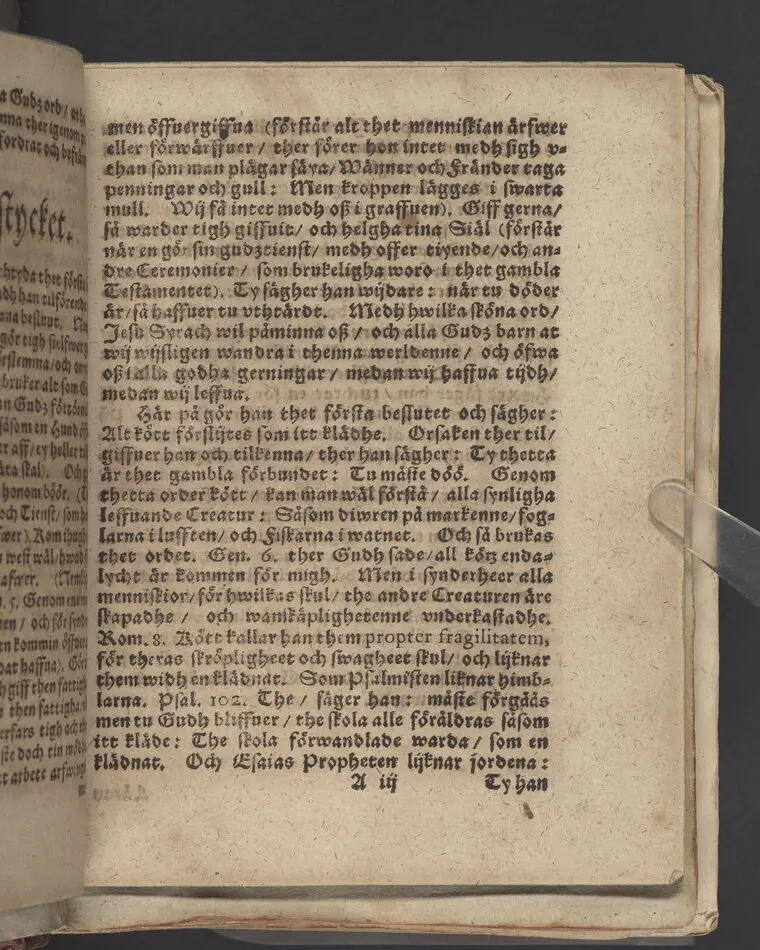 a Gudz ord /
nna ther igenom
fordrat och
stycket.
men öffuergiffua (förstår alt thet menniskian ärfwer
eller förwärffuer / ther förer hon intet medh sigh v=
than som man plägar säya / Wänner och Fränder taga
penningar och gull: Men kroppen lägges i swarta
mull. Wij få intet medh oß i graffuen). Giff gerna /
så warder tigh giffuit / och helgha tina Siäl (förstår
när en gör sin gudztienst / medh offer tiyende / och an=
dre Ceremonier / som brukeligha woro i thet gambla
Testamentet). Ty sägher han wijdare: när tu döder
är / så haffuer tu vthtärdt. Medh hwilka sköna ord /
Jesu Syrach wil påminna oß / och alla Gudz barn at
wij wijsligen wandra i thenna werldenne / och öfwa
oß i alla godha gerningar / medan wij haffua tijdh /
medan wij leffua.
Här på gör han thet första beslutet och sägher:
Alt kött förslijtes som itt klädhe. Orsaken ther til /
giffuer han och tilkenna / ther han sägher: Ty thetta
är thet gambla förbundet: Tu måste döö. Genom
thetta order kött / kan man wäl förstå / alla synligha
leffuande Creatur: Såsom diwren på markenne / fog=
larna i lufften / och Fiskarna i watnet. Och så brukas
thet ordet. Gen. 6. ther Gudh sade / all kötz enda=
lycht är kommen för migh. Men i synderheer alla
menniskior / för hwilkas skul / the andre Creaturen äre
skapadhe / och wanskäplighetenne vnderkastadhe.
Rom. 8. Kött kallar han them propter fragilitatem,
för theras skröpligheet och swagheet skul / och lijknar
them widh en klädnat. Som Psalmisten liknar himb=
larna. Psal. 102. The / säger han: måste förgåås
men tu Gudh bliffuer / the skola alle föräldras såsom
itt kläde: The skola förwandlade warda / som en
klädnat. Och Esaias Propheten lijknar jordena:
A iij Ty han